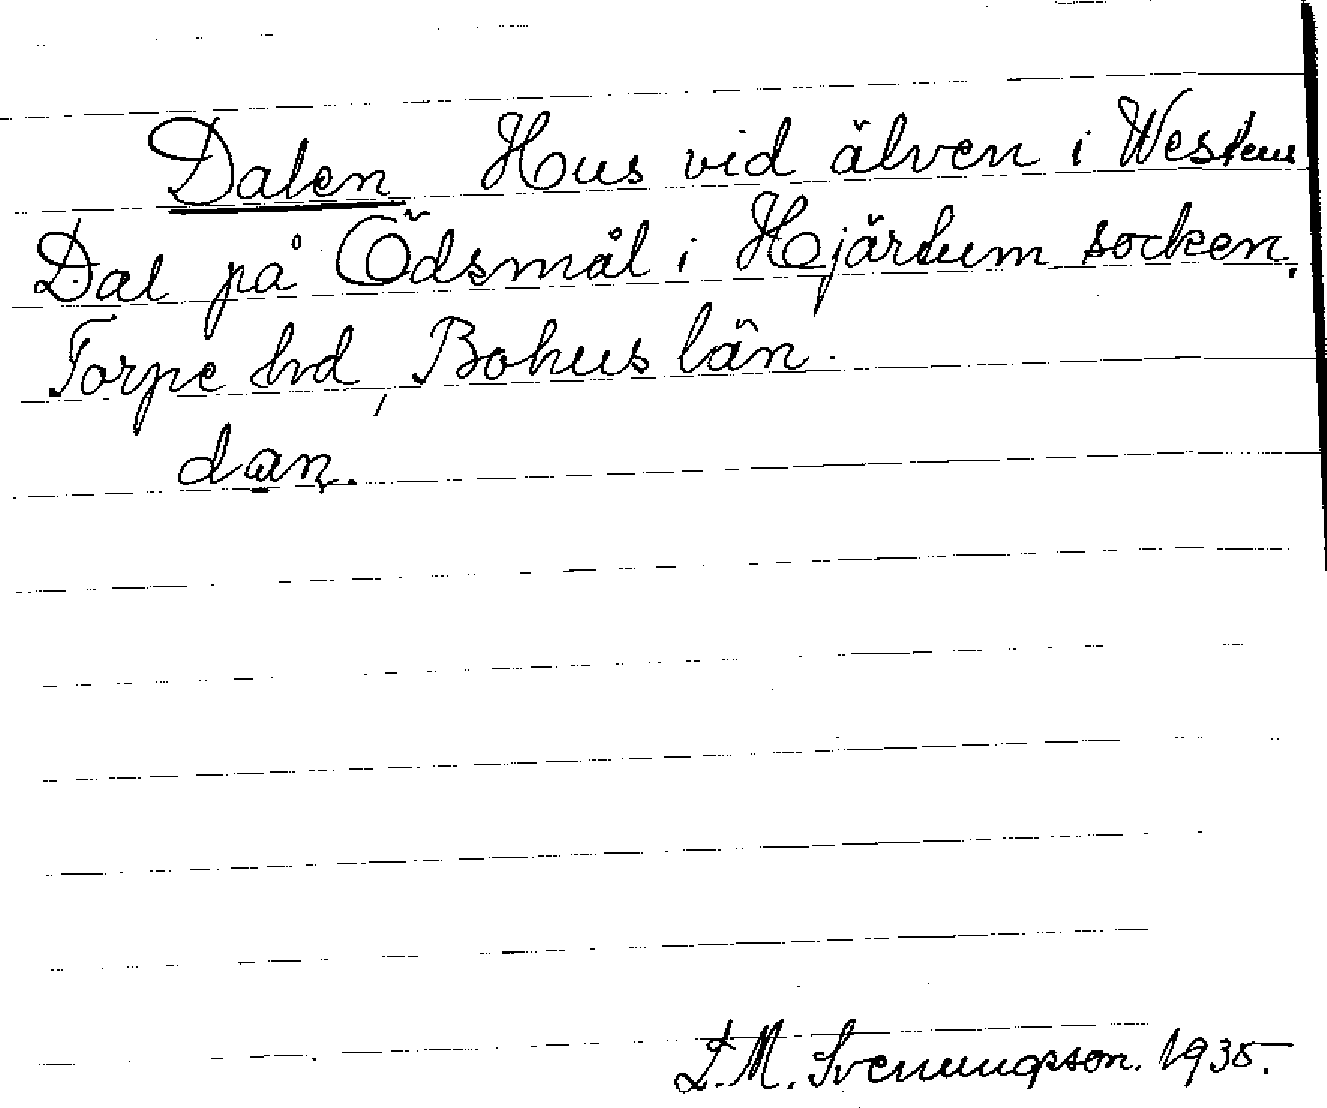 Dalen Hus vid älven i Westens
Dal på Ödsmål i Hjärtum socken.
Torpe hd, Bohus län.
dan.
L.M. Svenungsson. 1935.